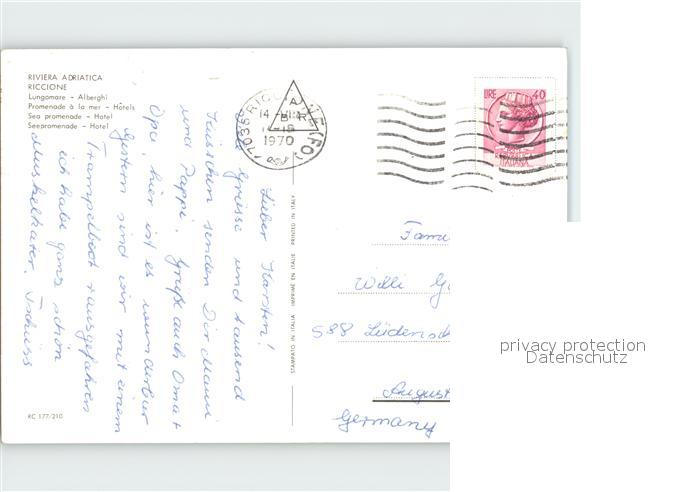 RIVIERA ADRIATICA
RICCIONE
Lungomare - Alberghi
Promenade à la mer - Hôtels
Sea promenade - Hotel
Seepromenade - Hotel
Lieber Karsten!
Viele Grüsse und tausend
Küsschen senden Dir Mami
und Pappi. Grüße auch Oma +
Opa, hier ist es wunderbar
Gestern sind wir mit einem
Trampelboot rausgefahren
ich habe ganz schön
Muskelkater. Tschüss
RC 177/210
STAMPATO IN ITALIA IMPRIMÉ EN ITALIE PRINTED IN ITALY
47036 RICCIONE (FO)
14
1970
LIRE 40
REPUBBLICA
ITALIANA
Fami
Willi
588 Lüdensch
August
Germany
privacy protection
Datenschutz